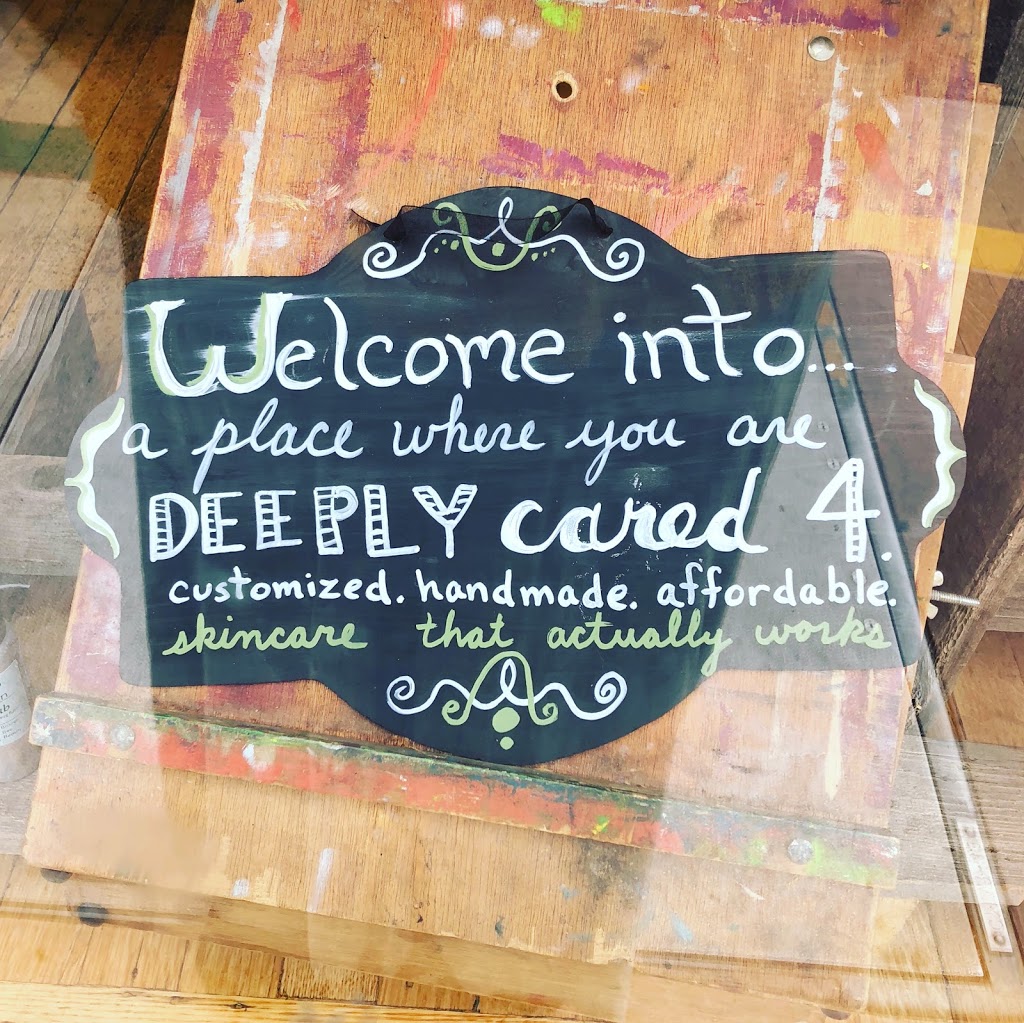 Welcome into...
a place where you are
DEEPLY cared 4.
customized. handmade. affordable.
skincare that actually works